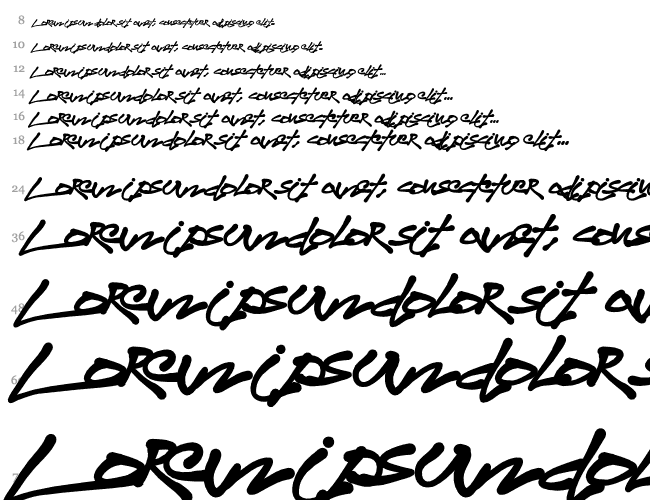 8 Lorem ipsum dolor sit amet, consectetuer adipiscing elit.
10 Lorem ipsum dolor sit amet, consectetuer adipiscing elit.
12 Lorem ipsum dolor sit amet, consectetuer adipiscing elit...
14 Lorem ipsum dolor sit amet, consectetuer adipiscing elit...
16 Lorem ipsum dolor sit amet, consectetuer adipiscing elit...
18 Lorem ipsum dolor sit amet, consectetuer adipiscing elit...
24 Lorem ipsum dolor sit amet, consectetuer
36 Lorem ipsum dolor sit amet,
48 Lorem ipsum dolor sit
Lorem ipsum dolor
Lorem ipsum